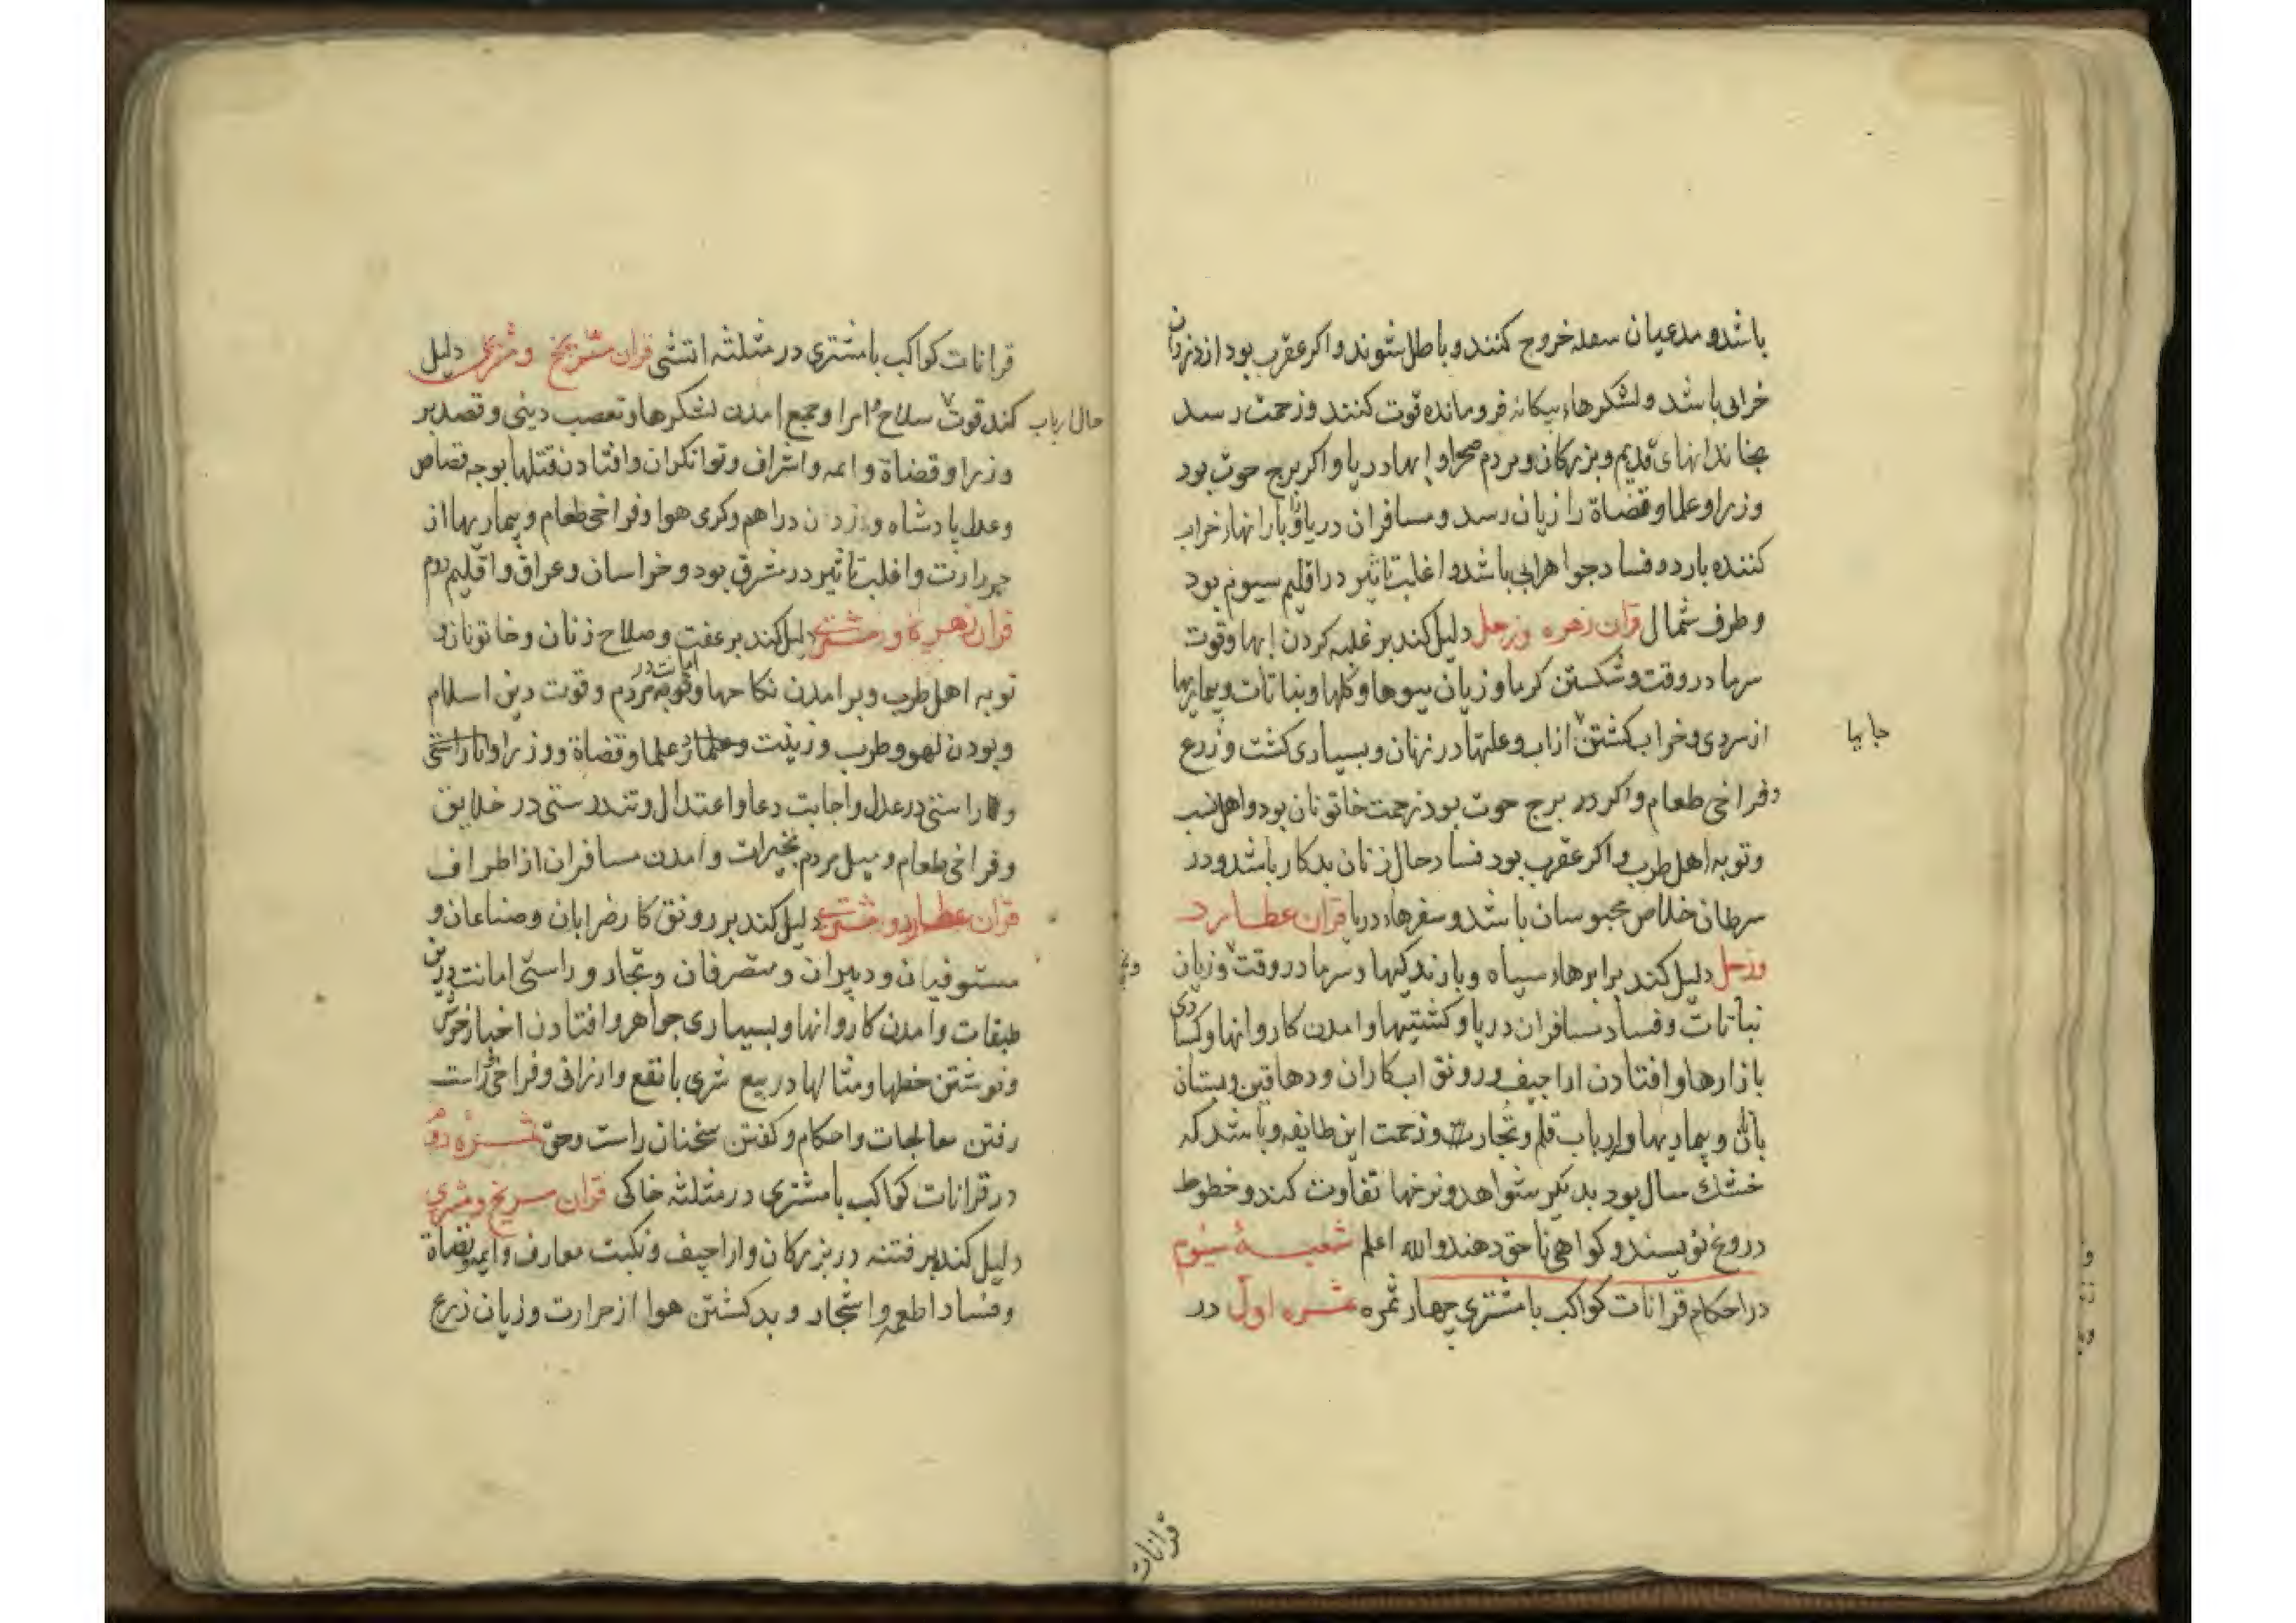 باشد و مدعیان سعد خروج کنند و باطل شوند و اکر عقرب بود از دزدان
خرابی باشد و لشکرهاء بیکانه فرومانده قوت کنند و زحمت رسد
بخاندانهای قدیم و بزرکان و مردم صحرا و ابها و دریا و اکر برج حوت بود
وزرا و علما و قضاة را زیان رسد و مسافران دریا و بارانهاء خراب
کننده بارد و فساد جواهر ابی باشد و اغلب تاثیر در اقلیم سیوم بود
و طرف شمال قران زهره و زحل دلیل کند بر غلبه کردن ابها و قوت
سرما در وقت و شکستن کرما و زیان میوها و کلها و نباتات و بیماریها
از سردی و خراب کشتن از اب و علتها در زنان و بسیاری کشت و زرع
جایها
و فراخی طعام و اکر در برج حوت بود زحمت خاتونان بود و اهل نسب
و توبه اهل طرب و اکر عقرب بود فساد حال زنان بدکار باشد و در
سرطان خلاص محبوسان باشد و سفرهاء دریا قران عطارد
و زحل دلیل کند بر ابرهاء سیاه و بارندکیها و سرما در وقت و زیان
نباتات و فساد مسافران دریا و کشتیها و امدن کاروانها و کسادی
بازارها و افتادن اراجیف و رونق ابکاران و دهاقین و بستان
بانان و بیماریها و ارباب قلم و تجارت و زحمت این طایفه و باشد که
خشک سال بود بدیکر شواهد و نرخها تفاوت کند و خطوط
دروغ نویسند و کواهی ناحق دهند والله اعلم شعبهٔ سیوم
در احکام قرانات کواکب با مشتری چهار ثمره ثمره اول در
قرانات
قرانات کواکب با مشتری در مثلثه اتشی قران مریخ و مشتری دلیل
کند قوت سلاح امرا و جمع امدن لشکرها و تعصب دینی و قصد بر
حال ارباب
وزرا و قضاة و ایمه و اشراف و توانکران و افتادن قتلها بوجه قصاص
و عدل پادشاه و زدن دراهم و کرمی هوا و فراخی طعام و بیماریها از
حرارت و اغلب تاثیر در مشرق بود و خراسان و عراق و اقلیم دوم
قران زهره و مشتری دلیل کند بر عفت و صلاح زنان و خاتونان و
توبه اهل طرب و برامدن نکاحها و توبه مردم و قوت دین اسلام
امانت در
و بودن لهو و طرب و زینت و علما در علما و قضاة و وزرا و راستی
و راستی در عدل و اجابت دعا و اعتدال و تندرستی در خلایق
و فراخی طعام و میل مردم بخیرات و امدن مسافران از اطراف
قران عطارد و مشتری دلیل کند بر رونق کار ضرابان و صناعان و
مستوفیان و دبیران و متصرفان و تجار و راستی امانت درین
طبقات و امدن کاروانها و بسیاری جواهر و افتادن اخبار خوش
و نوشتن خطها و مثالها در بیع شری با نفع و ارزانی و فراخی و راست
رفتن معالجات و احکام و کفتن سخنان راست و حق ثمره دوم
در قرانات کواکب با مشتری در مثلثه خاکی قران مریخ و مشتری
دلیل کند بر فتنه در بزرکان و اراجیف و نکبت معارف و ایمه و قضاة
و فساد اطعمه و اشجار و بد کشتن هوا از حرارت و زیان زرع